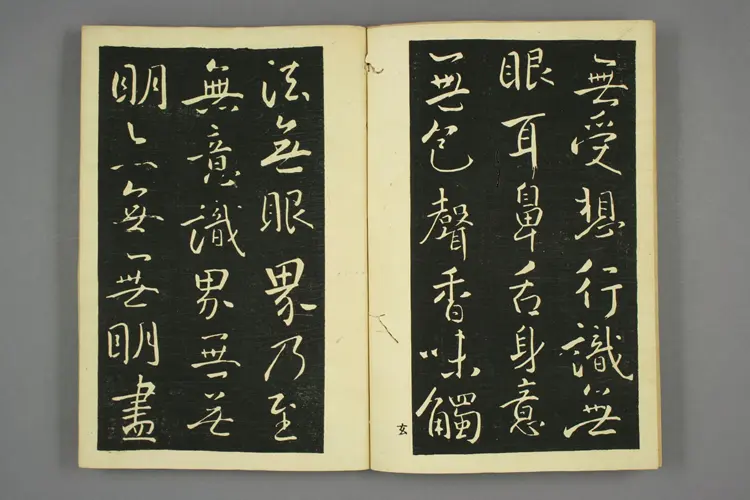 無受想行識無
眼耳鼻舌身意
無色聲香味觸
玄
法無眼界乃至
無意識界無無
明亦無無明盡